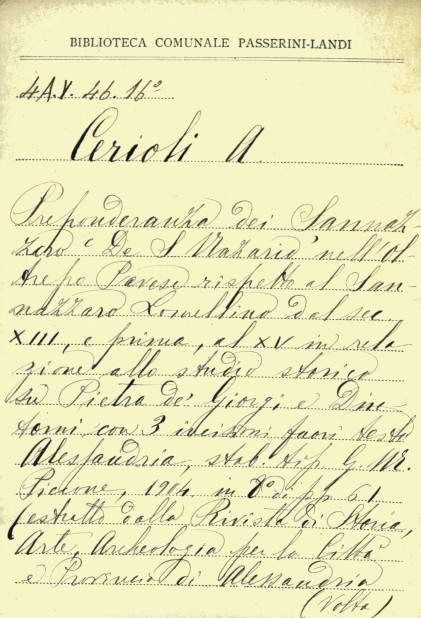 BIBLIOTECA COMUNALE PASSERINI-LANDI
4A.V. 46. 16º
Cerioli A.
Preponderanza dei Sannaz-
zaro "De S Nazario" nell'Ol-
trepo Pavese rispetto al San-
nazzaro Lomellino dal sec.
XIII, e prima, al XV in rela-
zione allo studio storico
su Pietra de' Giorgi e Din-
torni con 3 incisioni fuori testo
Alessandria, stab. tip G. M.
Piccone, 1904 in 8º di pp 61
(estratto dalla Rivista di Storia,
Arte, Archeologia per la Città
e Provincia di Alessandria
(volta)